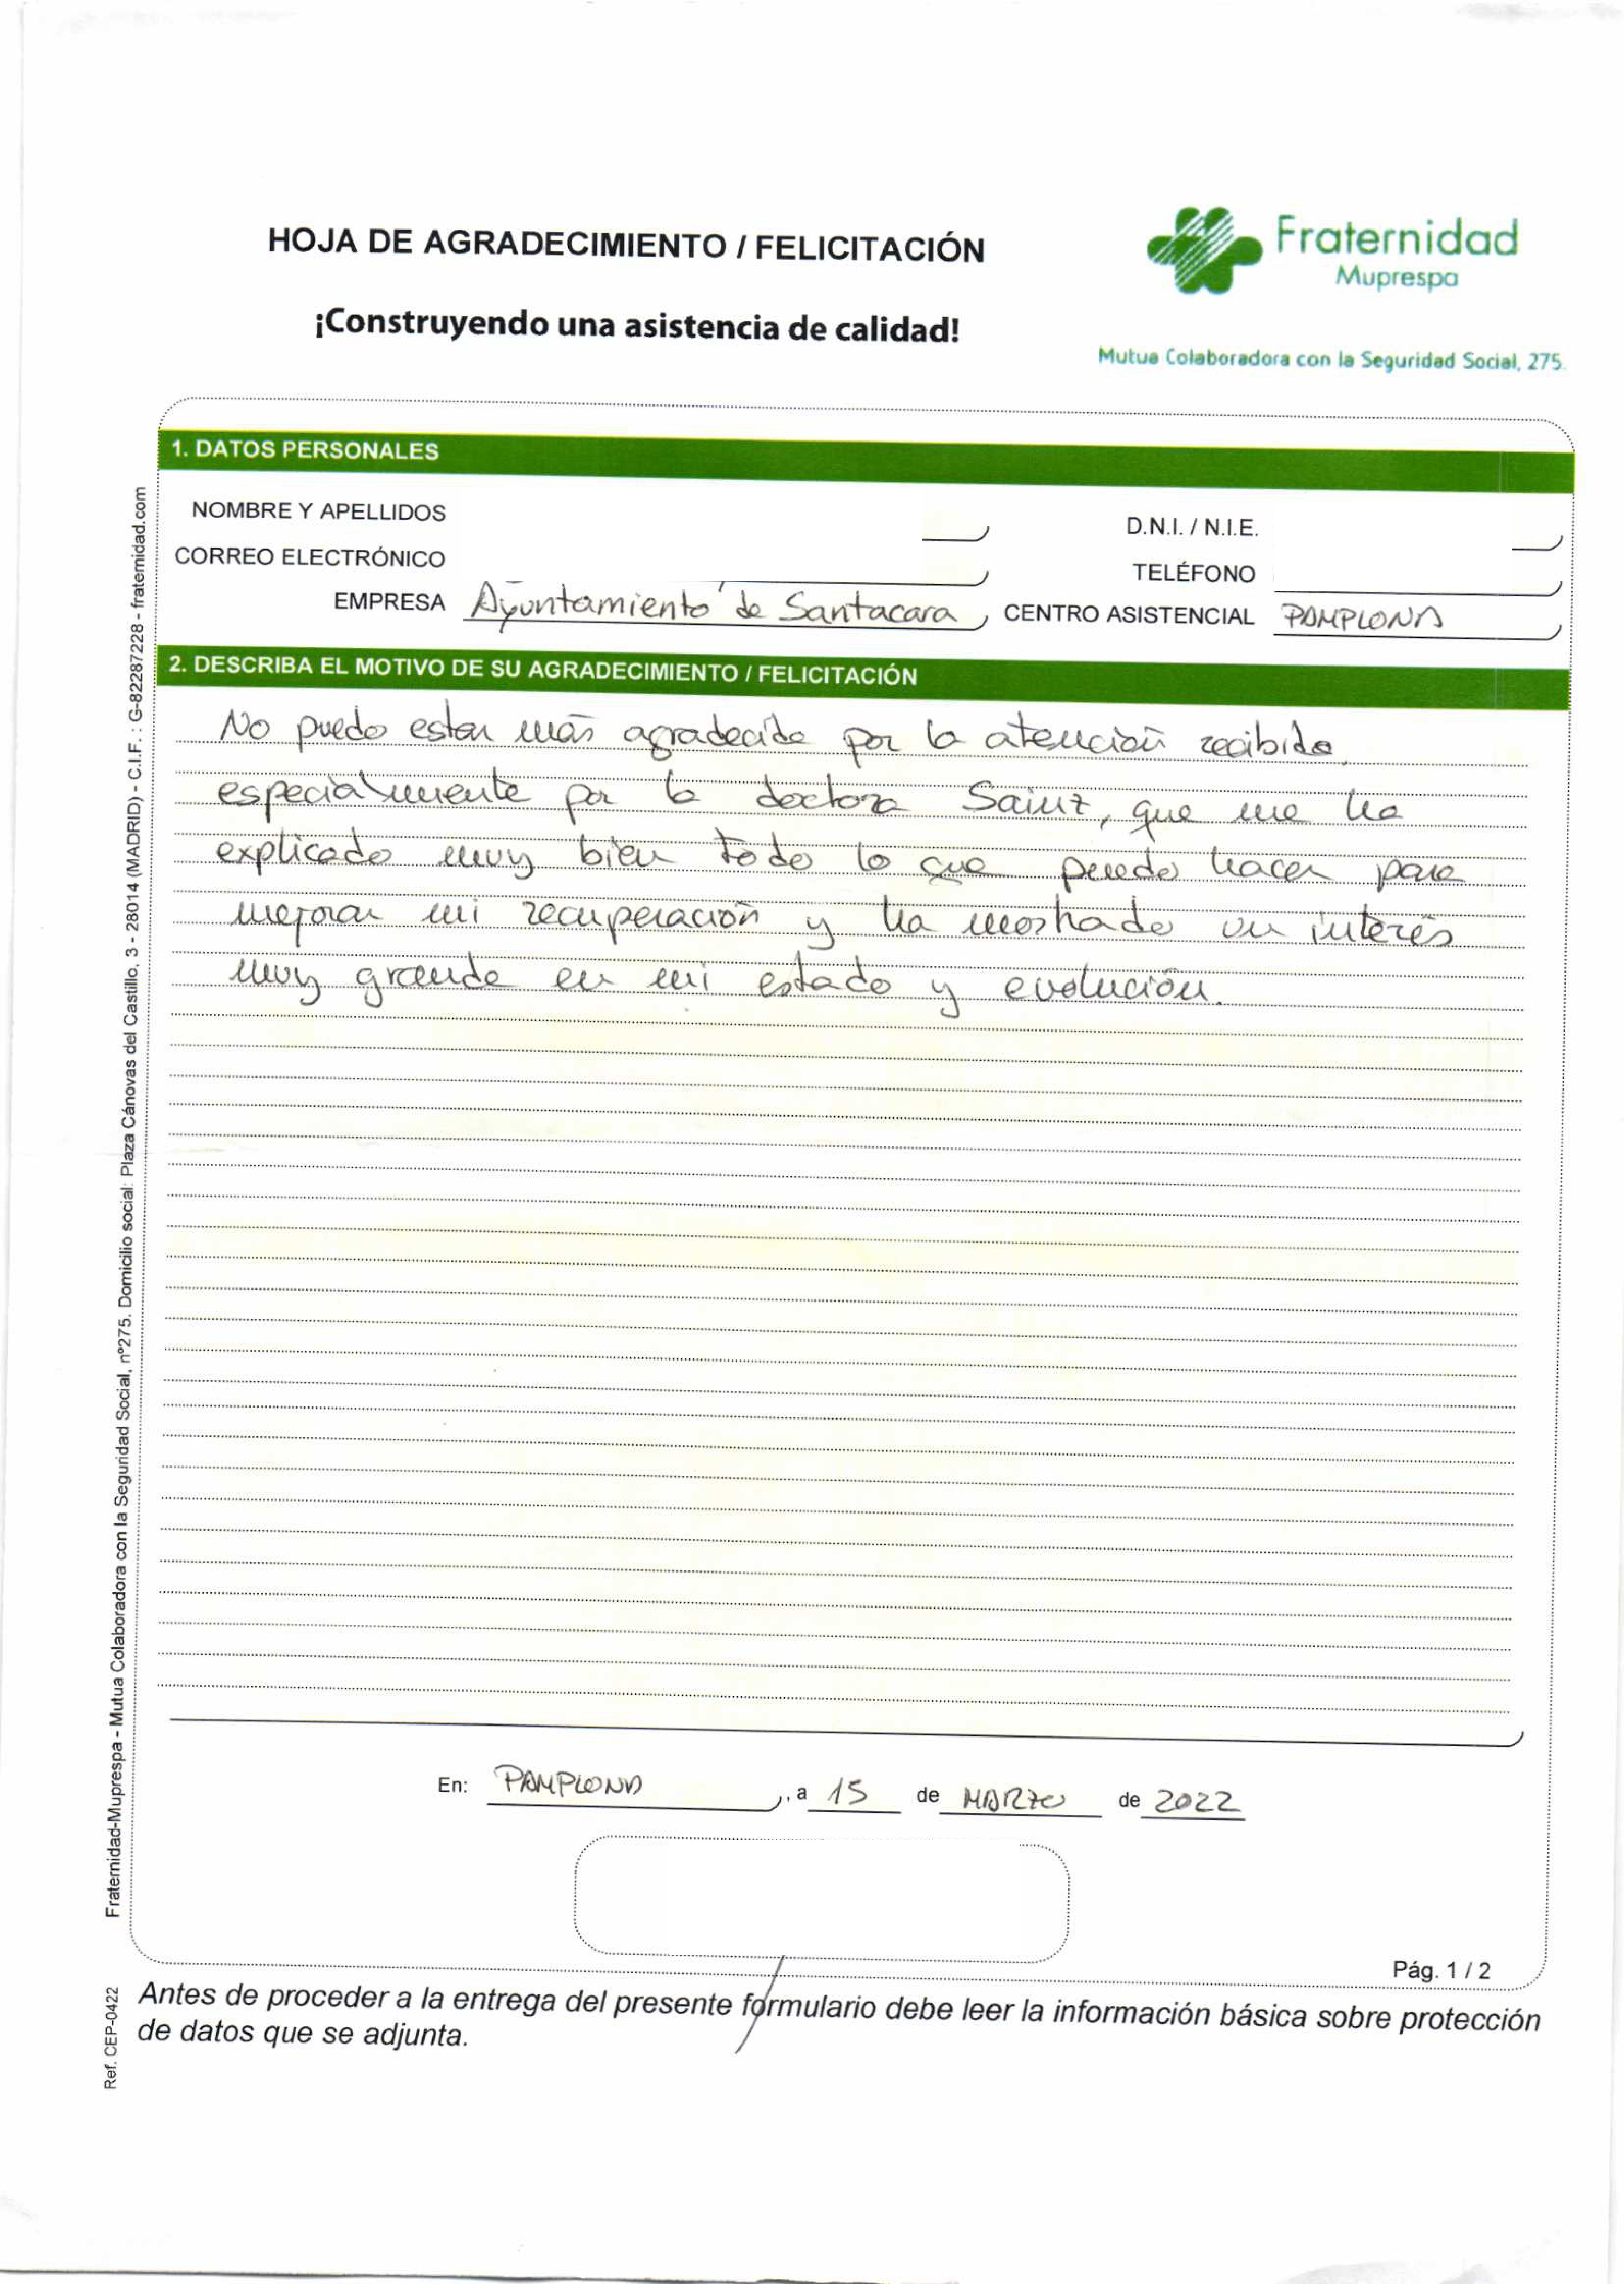 HOJA DE AGRADECIMIENTO / FELICITACIÓN
¡Construyendo una asistencia de calidad!
Fraternidad
Muprespa
Mutua Colaboradora con la Seguridad Social, 275
1. DATOS PERSONALES
NOMBRE Y APELLIDOS
D.N.I. / N.I.E.
CORREO ELECTRÓNICO
TELÉFONO
EMPRESA Ayuntamiento de Santacara CENTRO ASISTENCIAL PAMPLONA
2. DESCRIBA EL MOTIVO DE SU AGRADECIMIENTO / FELICITACIÓN
No puedo estar más agradecida por la atención recibida,
especialmente por la doctora Sainz, que me ha
explicado muy bien todo lo que puedo hacer para
mejorar mi recuperación y ha mostrado un interés
muy grande en mi estado y evolución.
En: PAMPLONA, a 15 de MARZO de 2022
Pág. 1 / 2
Antes de proceder a la entrega del presente formulario debe leer la información básica sobre protección
de datos que se adjunta.
Fraternidad-Muprespa - Mutua Colaboradora con la Seguridad Social, nº275. Domicilio social: Plaza Cánovas del Castillo, 3 - 28014 (MADRID) - C.I.F. : G-82287228 - fraternidad.com
Ref. CEP-0422